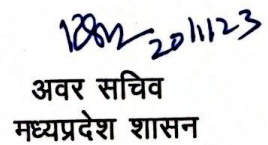 20/11/23
अवर सचिव
मध्यप्रदेश शासन